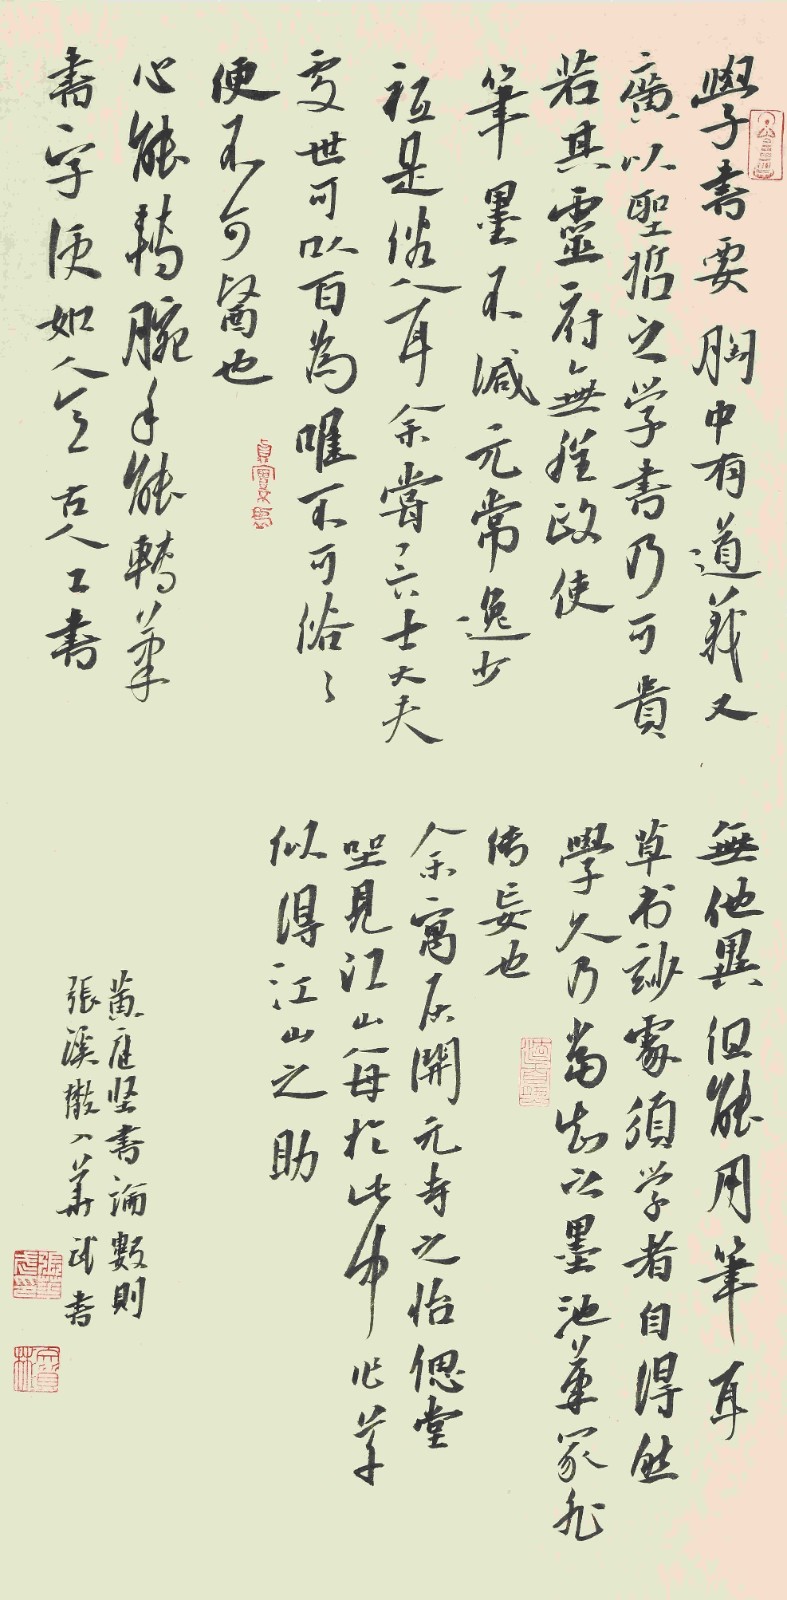 學書要胸中有道義又
廣以聖哲之学書乃可貴
若其靈府無程政使
筆墨不減元常逸少
秪是俗人耳余嘗言士大夫
處世可以百為唯不可俗〻
便不可醫也
心能轉腕手能轉筆
書字便如人意古人工書
無他異但能用筆耳
草书妙處須学者自得然
學久乃當知之墨池筆冢非
传妄也
余寓居開元寺之怡偲堂
坐見江山每於此中作草
似得江山之助
黄庭坚書論數則
張溪散人華武書